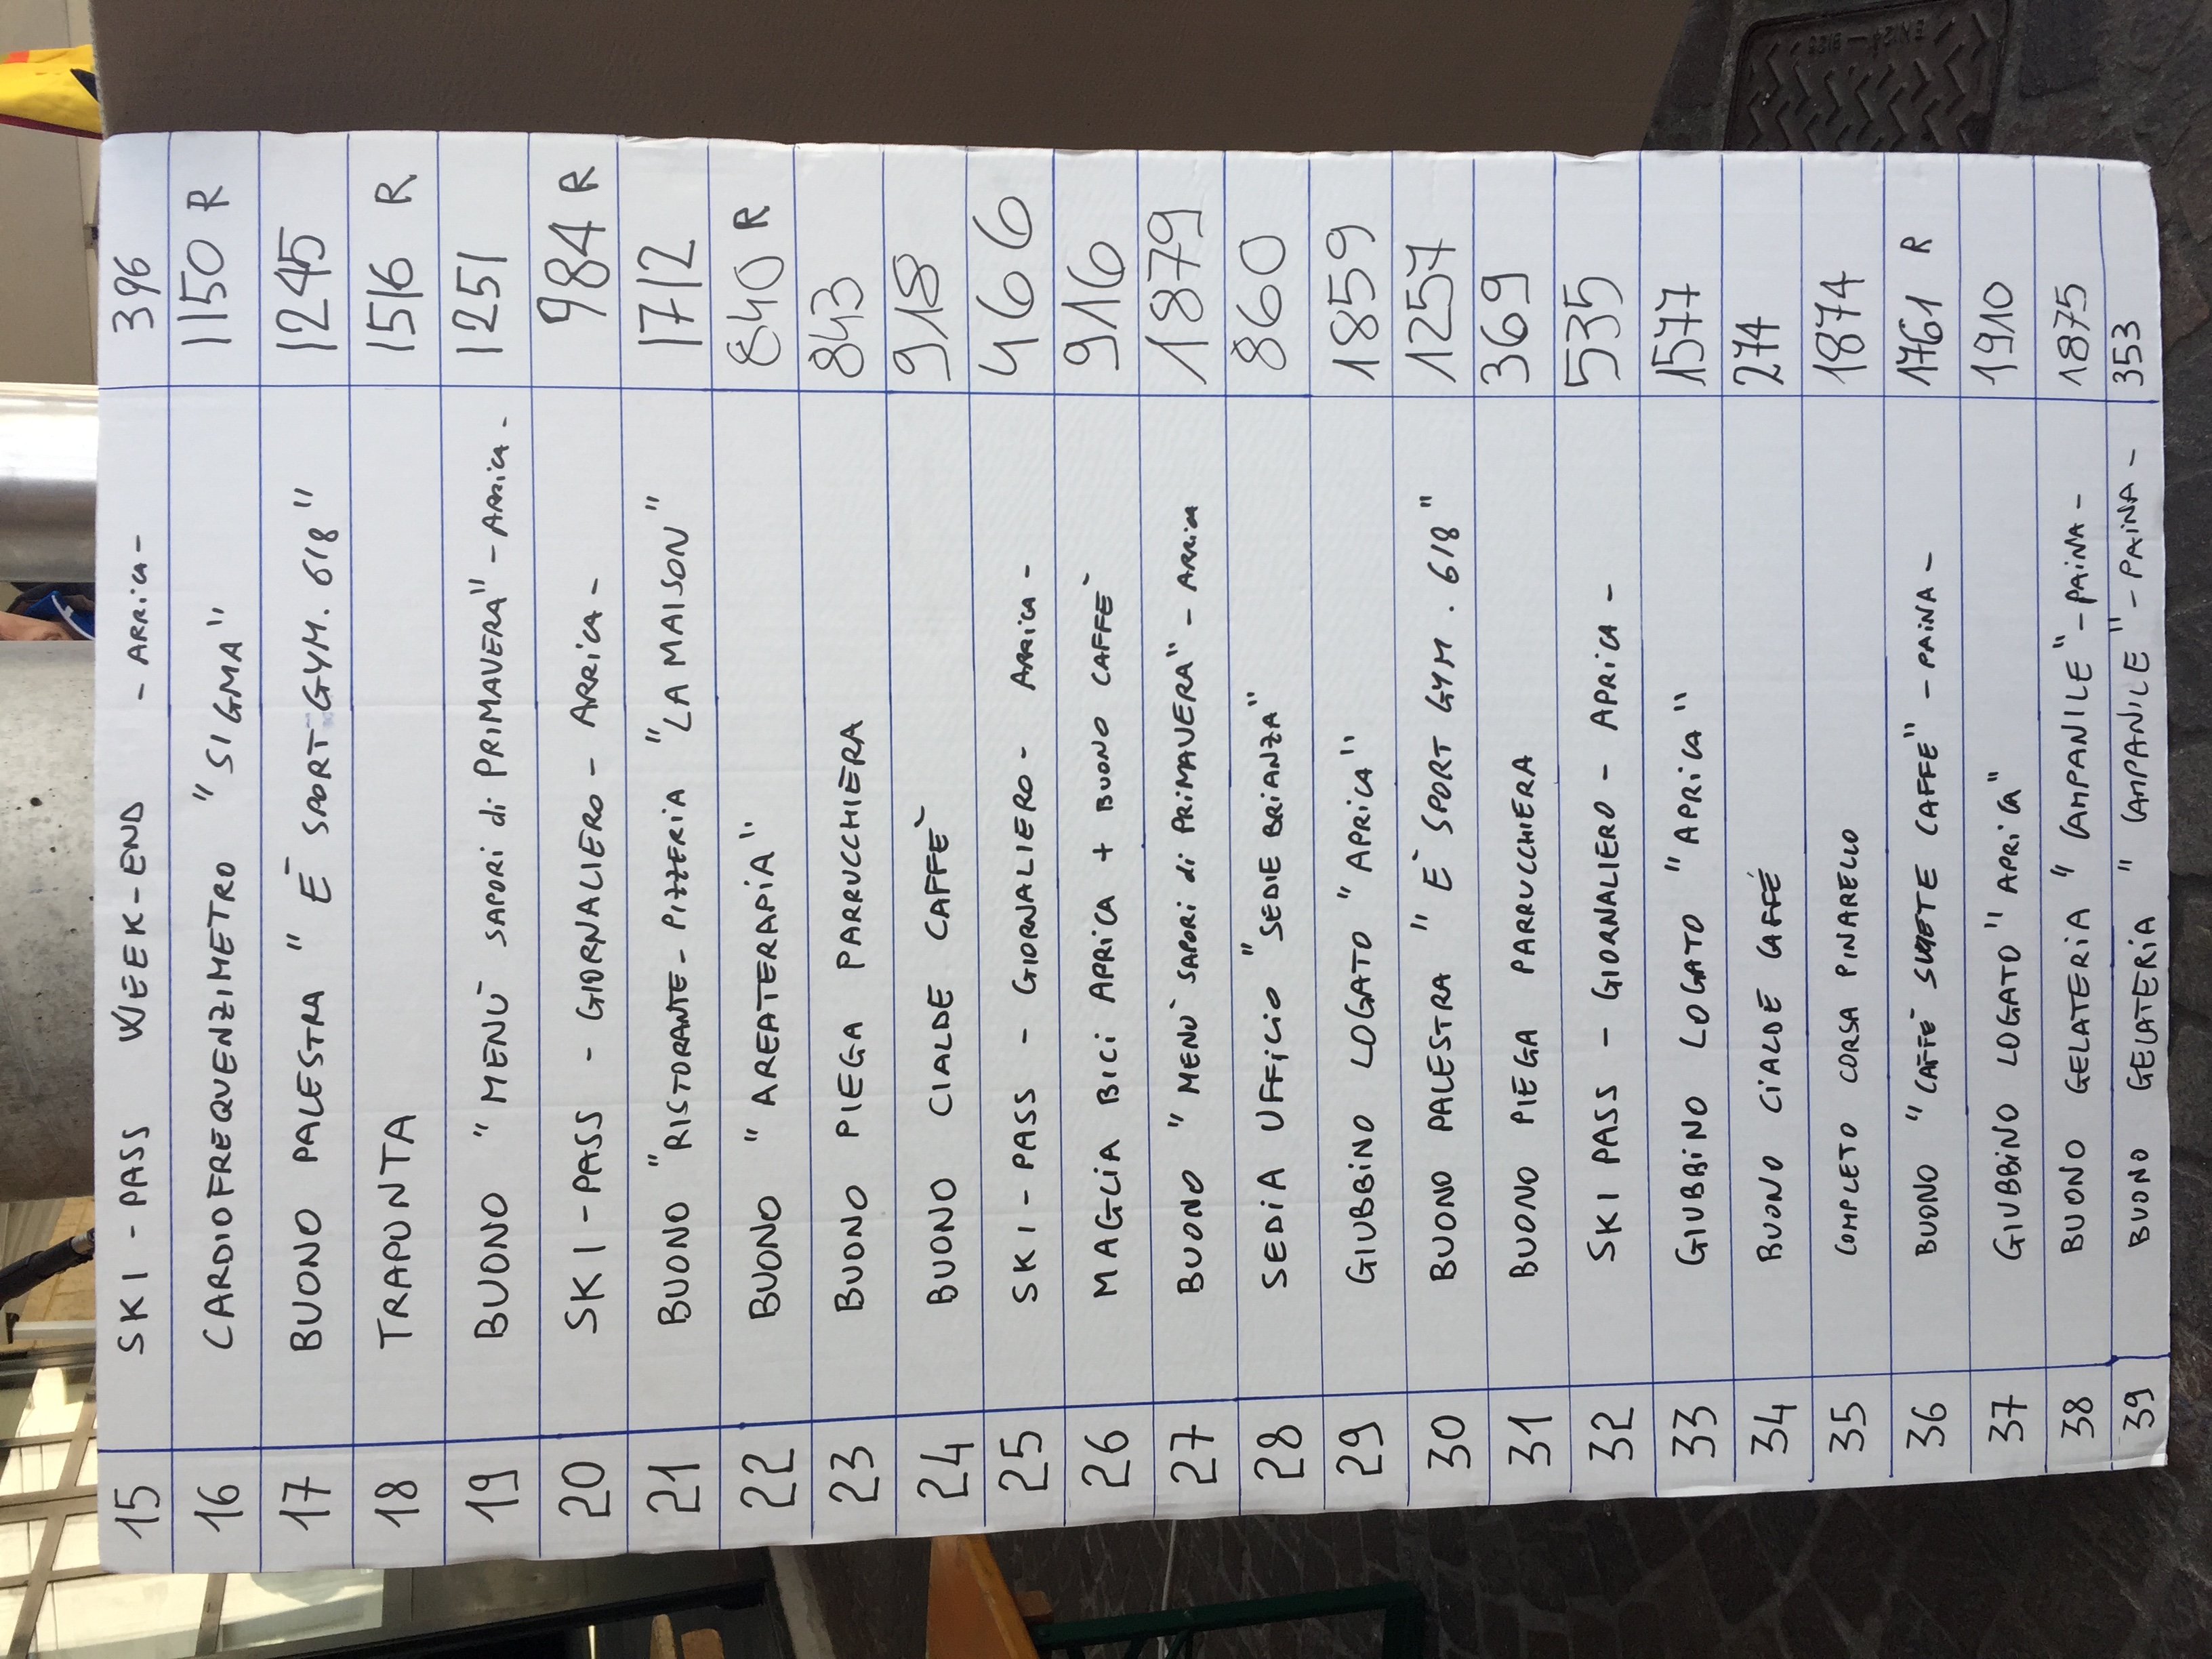 15 SKI - PASS WEEK-END - APRICA - 396
16 CARDIOFREQUENZIMETRO "SIGMA" 1150 R
17 BUONO PALESTRA "È SPORT GYM. 618" 1245
18 TRAPUNTA 1516 R
19 BUONO "MENÙ SAPORI di PRIMAVERA" - APRICA - 1251
20 SKI - PASS - GIORNALIERO - APRICA - 984 R
21 BUONO "RISTORANTE - PIZZERIA "LA MAISON" 1712
22 BUONO "AREATERAPIA" 840 R
23 BUONO PIEGA PARRUCCHIERA 843
24 BUONO CIALDE CAFFÈ 918
25 SKI - PASS - GIORNALIERO - APRICA - 466
26 MAGLIA BICI APRICA + BUONO CAFFÈ 916
27 BUONO "MENÙ SAPORI di PRIMAVERA" - APRICA 1879
28 SEDIA UFFICIO "SEDIE BRIANZA" 860
29 GIUBBINO LOGATO "APRICA" 1859
30 BUONO PALESTRA "È SPORT GYM. 618" 1257
31 BUONO PIEGA PARRUCCHIERA 369
32 SKI PASS - GIORNALIERO - APRICA - 535
33 GIUBBINO LOGATO "APRICA" 1577
34 BUONO CIALDE CAFFÈ 274
35 COMPLETO CORSA PINARELLO 1874
36 BUONO "CAFFÈ CAFFÈ" - PAINA - 1761 R
37 GIUBBINO LOGATO "APRICA" 1910
38 BUONO GELATERIA "CAMPANILE" - PAINA - 1875
39 BUONO GELATERIA "CAMPANILE" - PAINA - 353